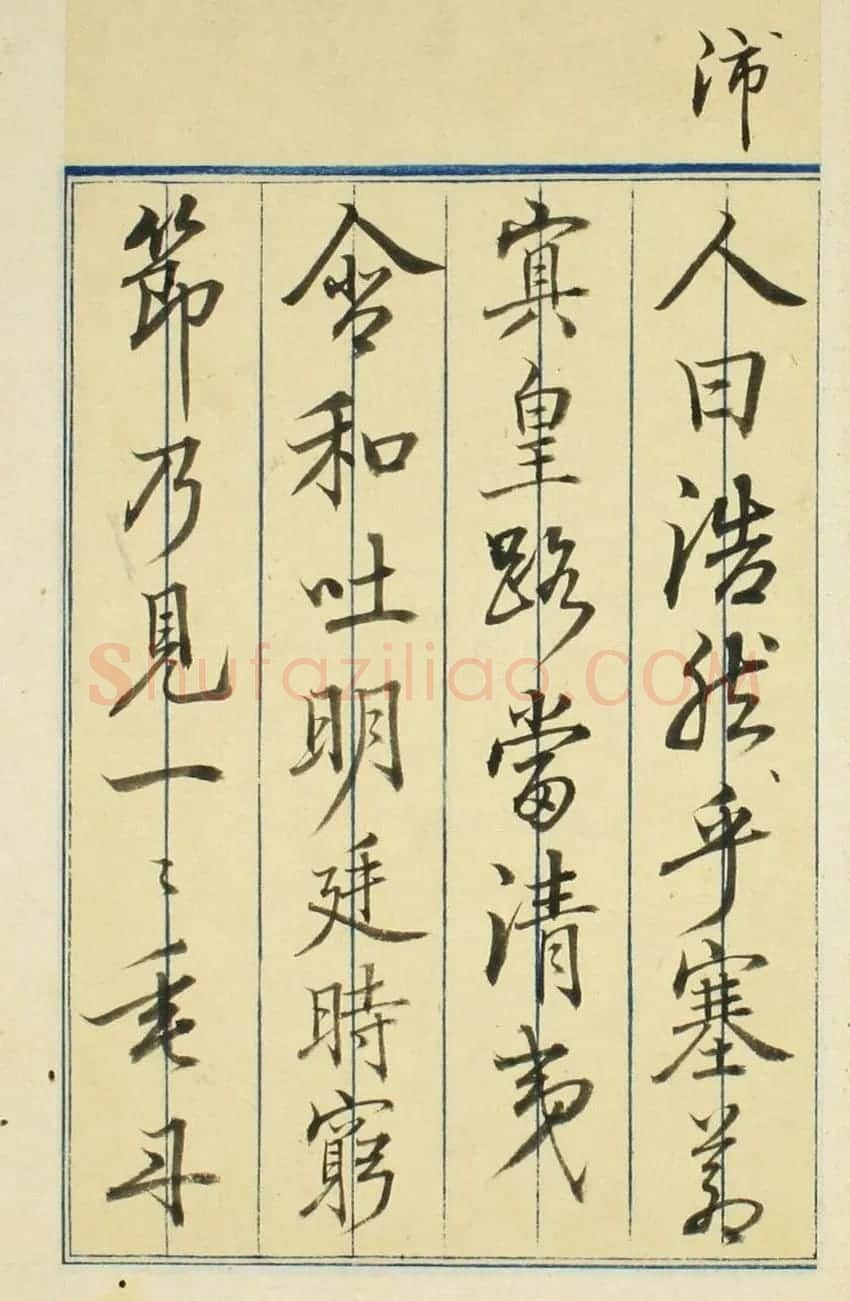 沛
人曰浩然乎塞蒼
冥皇路當清夷
含和吐明廷時窮
節乃見一〻垂丹
Shufaziliao.COM